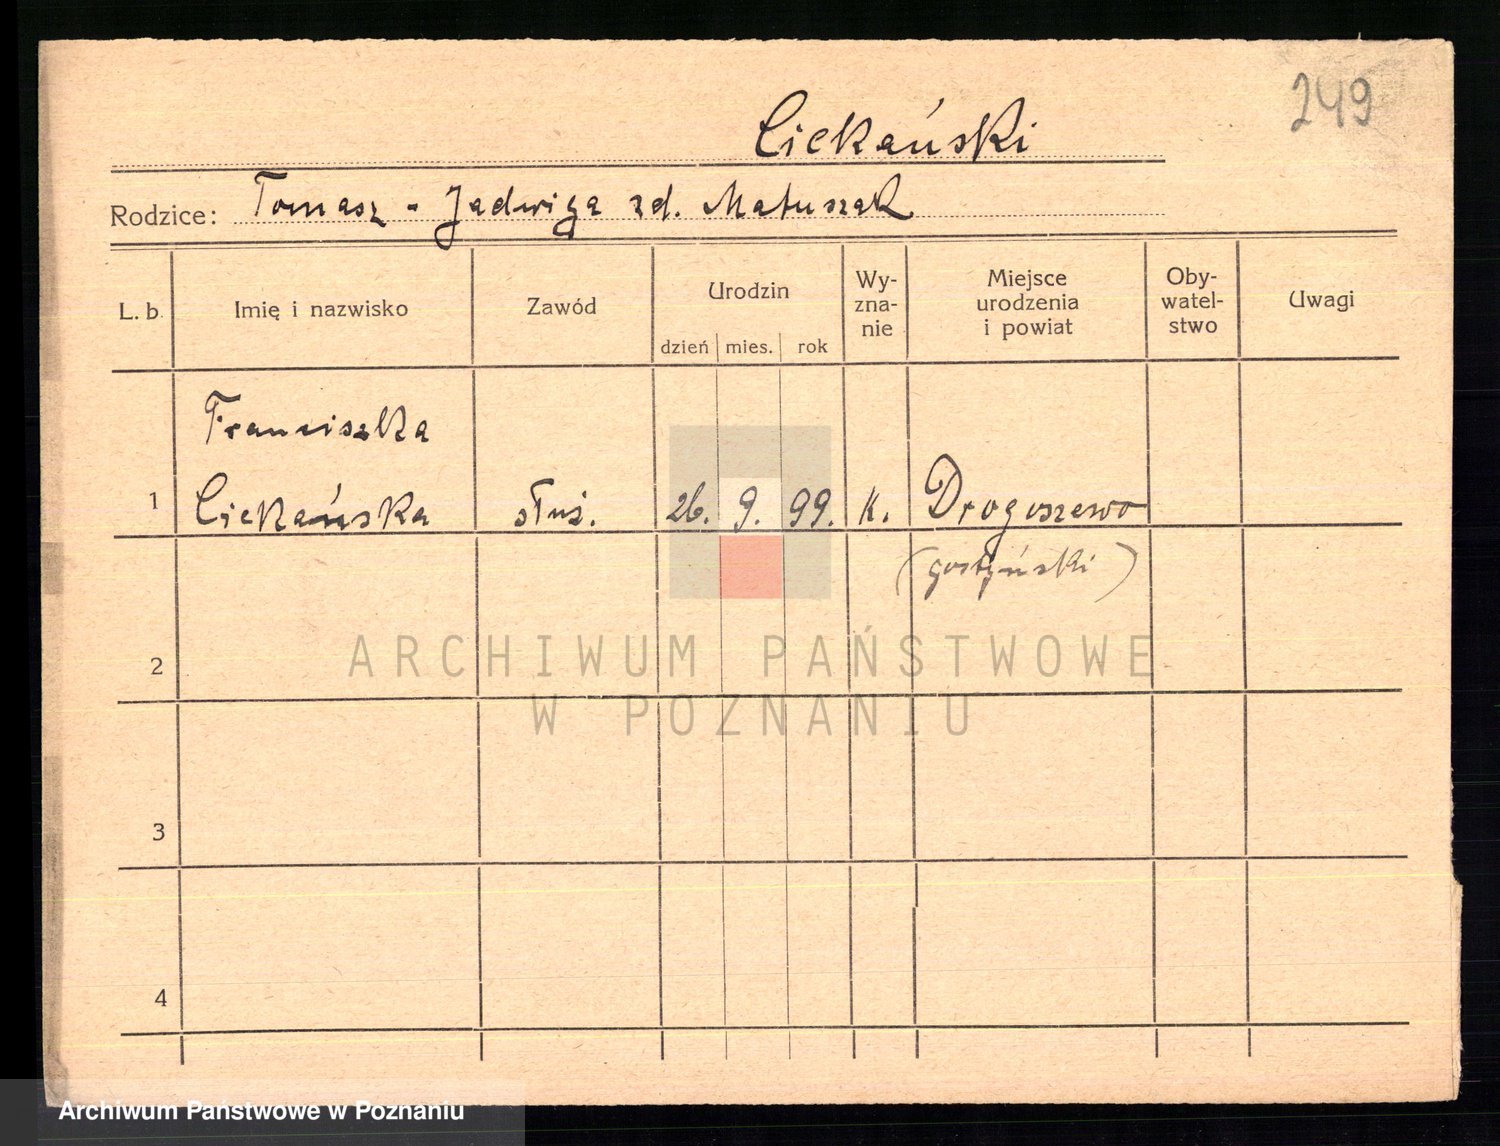 249
Ciekański
Rodzice: Tomasz - Jadwiga zd. Matuszak
L. b.
Imię i nazwisko
Zawód
Urodzin
dzień
mies.
rok
Wy-
zna-
nie
Miejsce
urodzenia
i powiat
Oby-
watel-
stwo
Uwagi
Franciszka
1 Ciekańska służ. 26. 9. 99. k. Drogoszewo
(gostyński)
2
ARCHIWUM PAŃSTWOWE
W POZNANIU
3
4
Archiwum Państwowe w Poznaniu